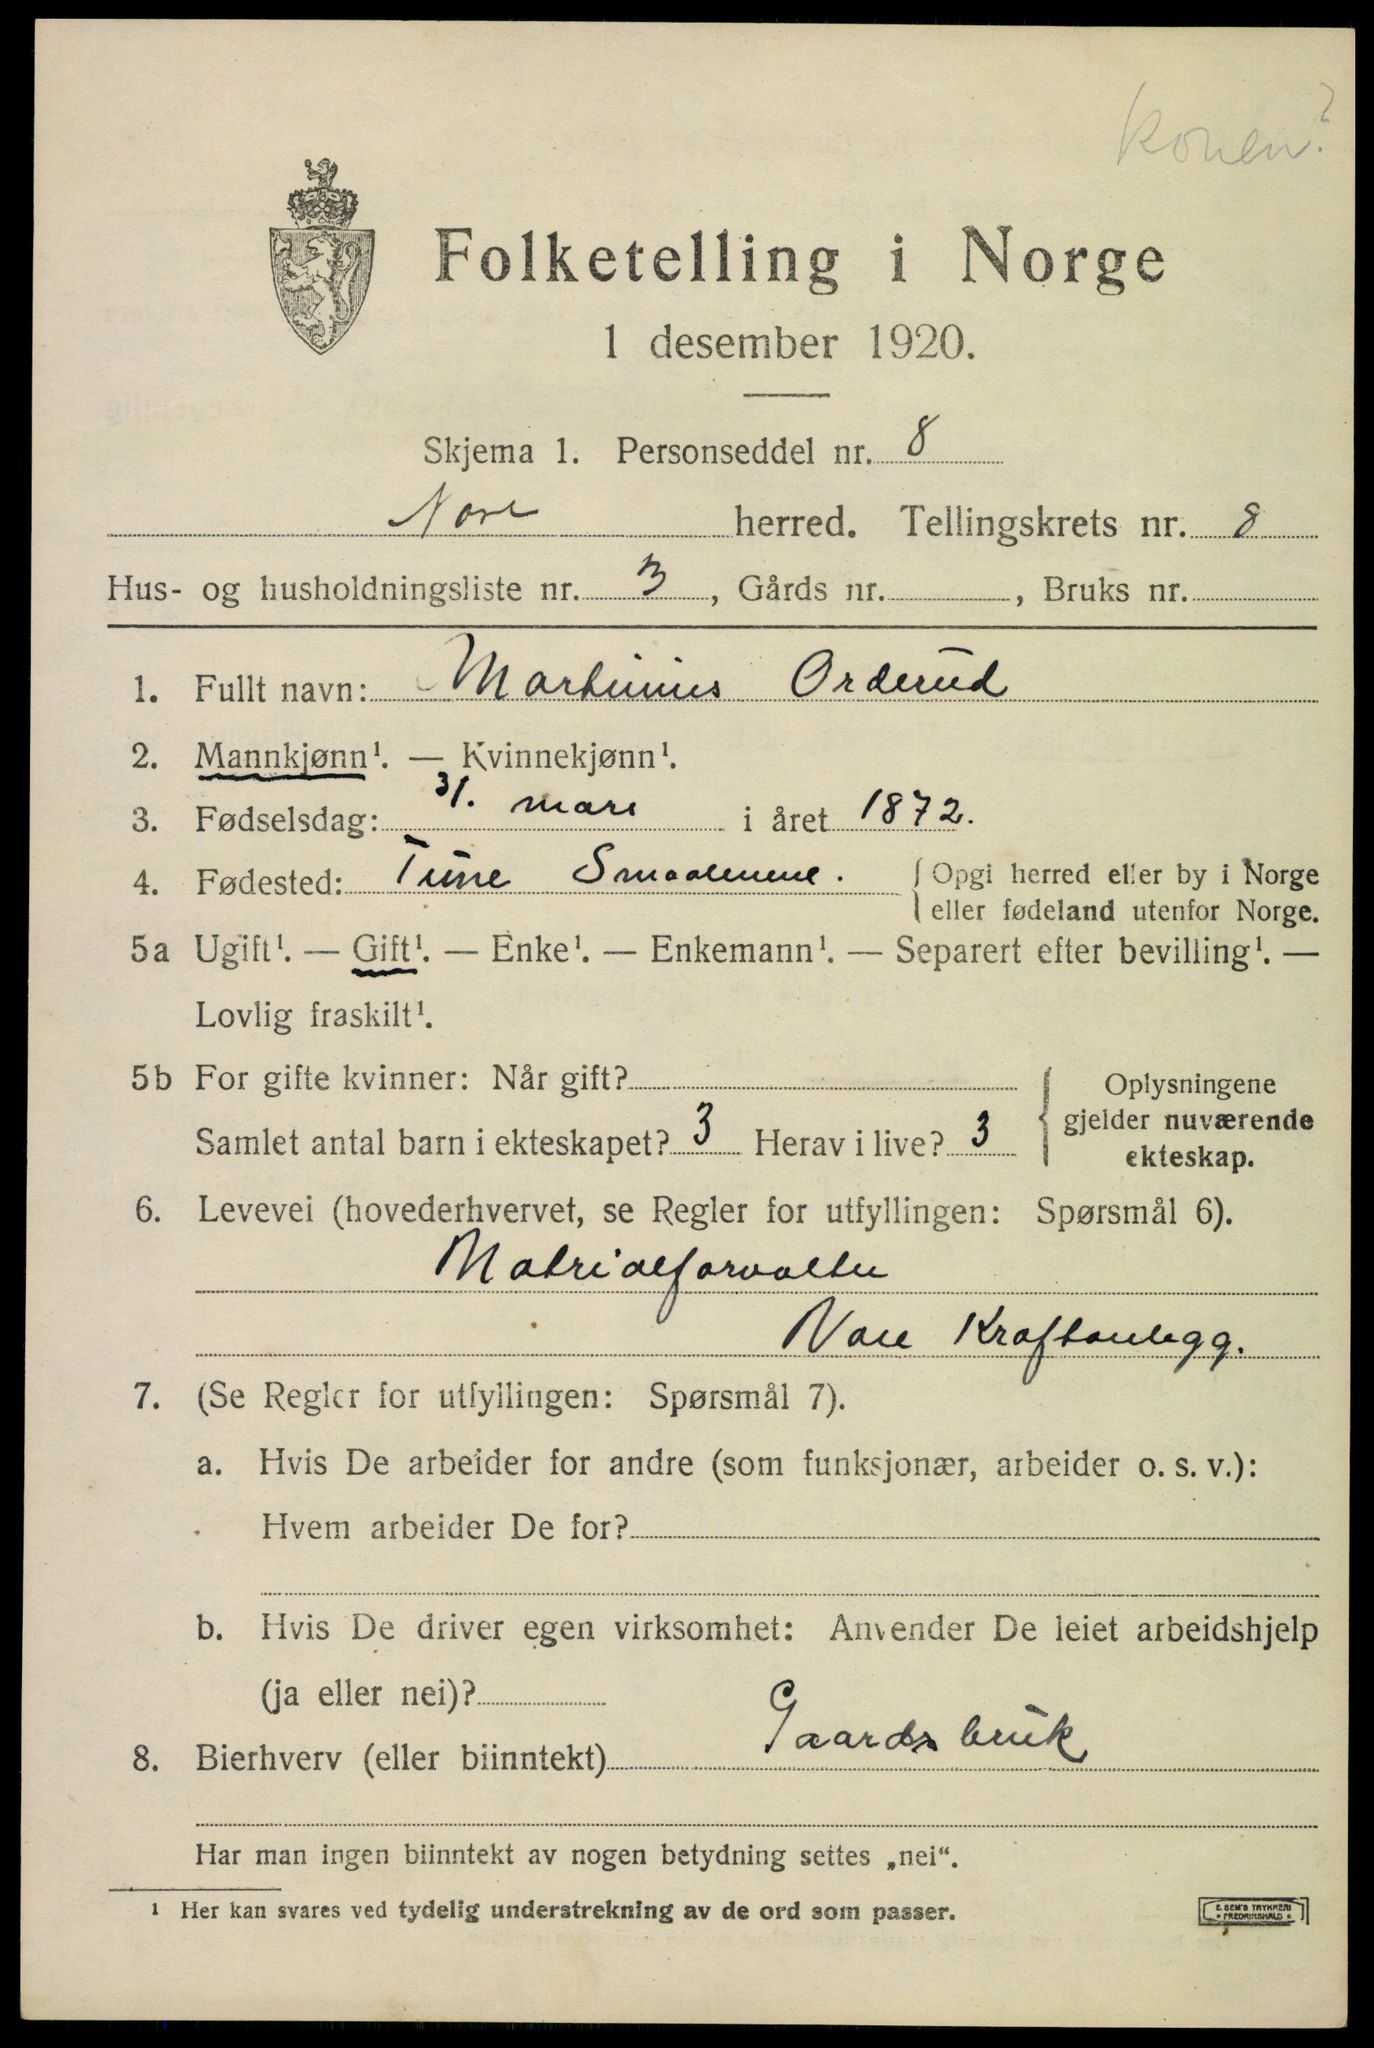 Konen?
Folketelling i Norge
1 desember 1920.
Skjema 1. Personseddel nr. 8
Nore herred. Tellingskrets nr. 8
Hus- og husholdningsliste nr. 3, Gårds nr. , Bruks nr.
1. Fullt navn: Martinius Orderud
2. Mannkjønn¹. — Kvinnekjønn¹.
3. Fødselsdag: 31. mars i året 1872.
4. Fødested: Tune Smaalenene. { Opgi herred eller by i Norge
eller fødeland utenfor Norge.
5a Ugift¹. — Gift¹. — Enke¹. — Enkemann¹. — Separert efter bevilling¹. —
Lovlig fraskilt¹.
5b For gifte kvinner: Når gift? { Oplysningene
Samlet antal barn i ekteskapet? 3 Herav i live? 3 gjelder nuværende
ekteskap.
6. Levevei (hovederhvervet, se Regler for utfyllingen: Spørsmål 6).
Matrialforvalter
Nore Kraftanlegg.
7. (Se Regler for utfyllingen: Spørsmål 7).
a. Hvis De arbeider for andre (som funksjonær, arbeider o. s. v.):
Hvem arbeider De for?
b. Hvis De driver egen virksomhet: Anvender De leiet arbeidshjelp
(ja eller nei)?
8. Bierhverv (eller biinntekt) Gaardsbruk
Har man ingen biinntekt av nogen betydning settes „nei“.
¹ Her kan svares ved tydelig understrekning av de ord som passer.
E. SEM'S TRYKKERI
FREDRIKSHALD